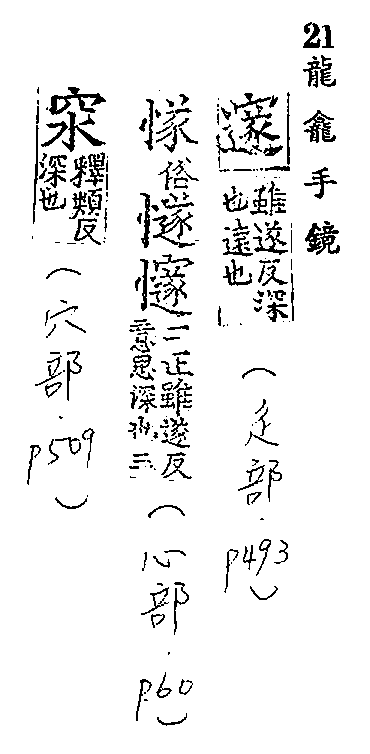 21 龍龕手鏡
邃
雖遂反深
也遠也
（辵部．p493）
俗
二正雖遂反
意思深也三
（心部．p60）
釋類反
深也
（穴部．p509）